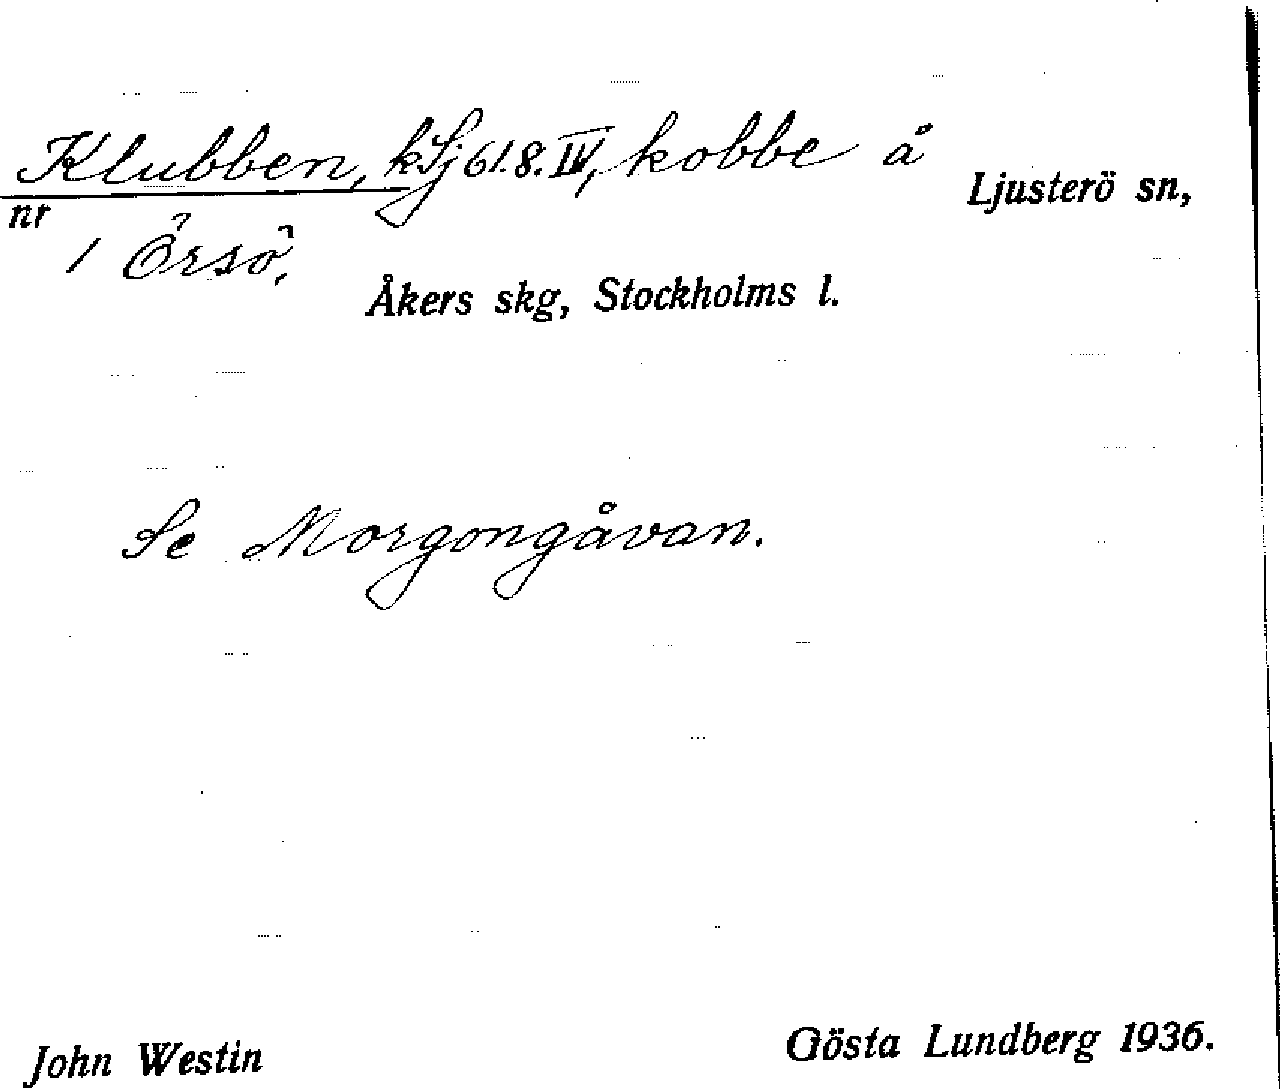 Klubben, kSj 61.8.IV, kobbe å Ljusterö sn,
nr 1 Örsö,
Åkers skg, Stockholms l.
Se Morgongåvan.
John Westin Gösta Lundberg 1936.